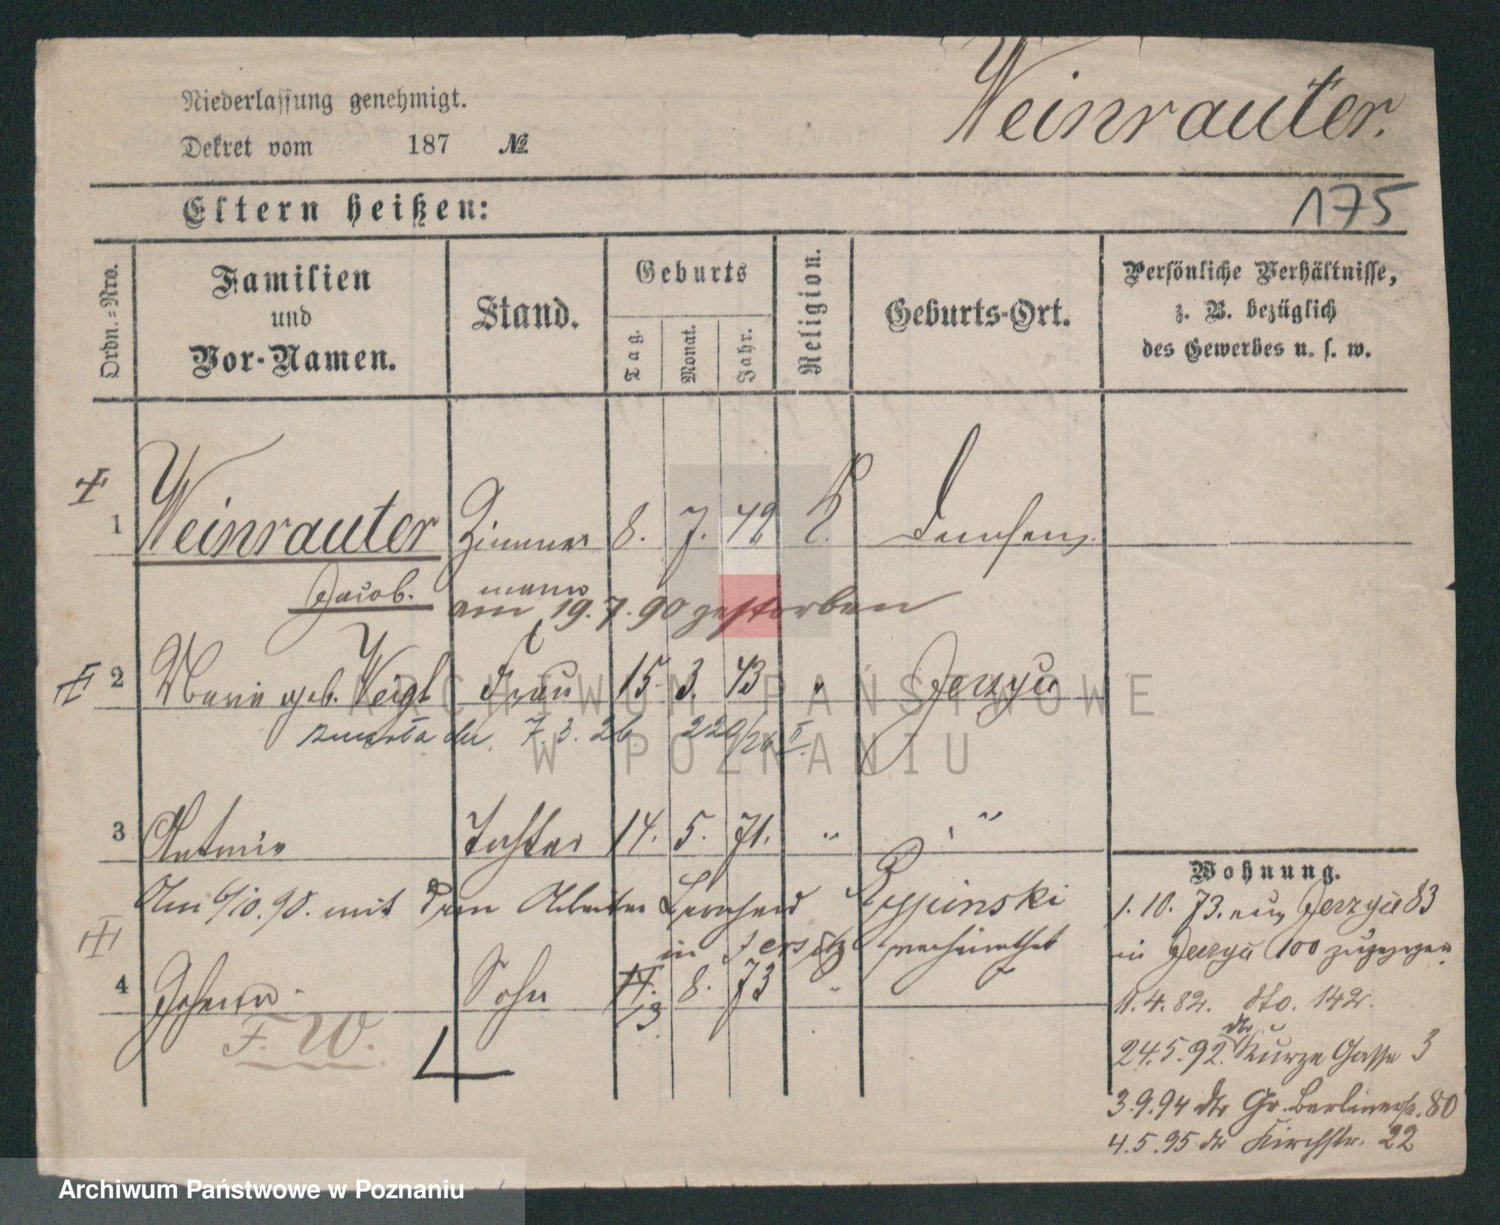 Weinrauter.
Niederlassung genehmigt.
Dekret vom 187 №
175
Eltern heißen:
Ordn.=Nro.
Familien und Vor-Namen.
Stand.
Geburts
Tag.
Monat.
Jahr.
Religion.
Geburts-Ort.
Persönliche Verhältnisse,
z. B. bezüglich
des Gewerbes u. s. w.
1 Weinrauter Zimmer 8. 7. 42 K.
Jacob. mann
am 19.7.90 gestorben
2 Marie geb. Weigt Frau 15. 3. 43 " Jerzyc
zmarła dn. 7.3.26 220/26 I.
3 Tochter 14. 5. 71. " "
Am 6/10.98. mit dem Arbeiter Bernhard
in Jersitz verheirathet
4 Johann Sohn 8. 73 "
13
F. W.
Wohnung.
1. 10. 73. aus Jerzyce 83
in Jerzyce 100 zugezogen
1.4.82. dto. 142.
24.5.92. dto Kurze Gasse 3
3.9.94 dto Gr. Berlinerstr. 80
4.5.95 dto Kirchstr. 22
ARCHIWUM PAŃSTWOWE
W POZNANIU
Archiwum Państwowe w Poznaniu